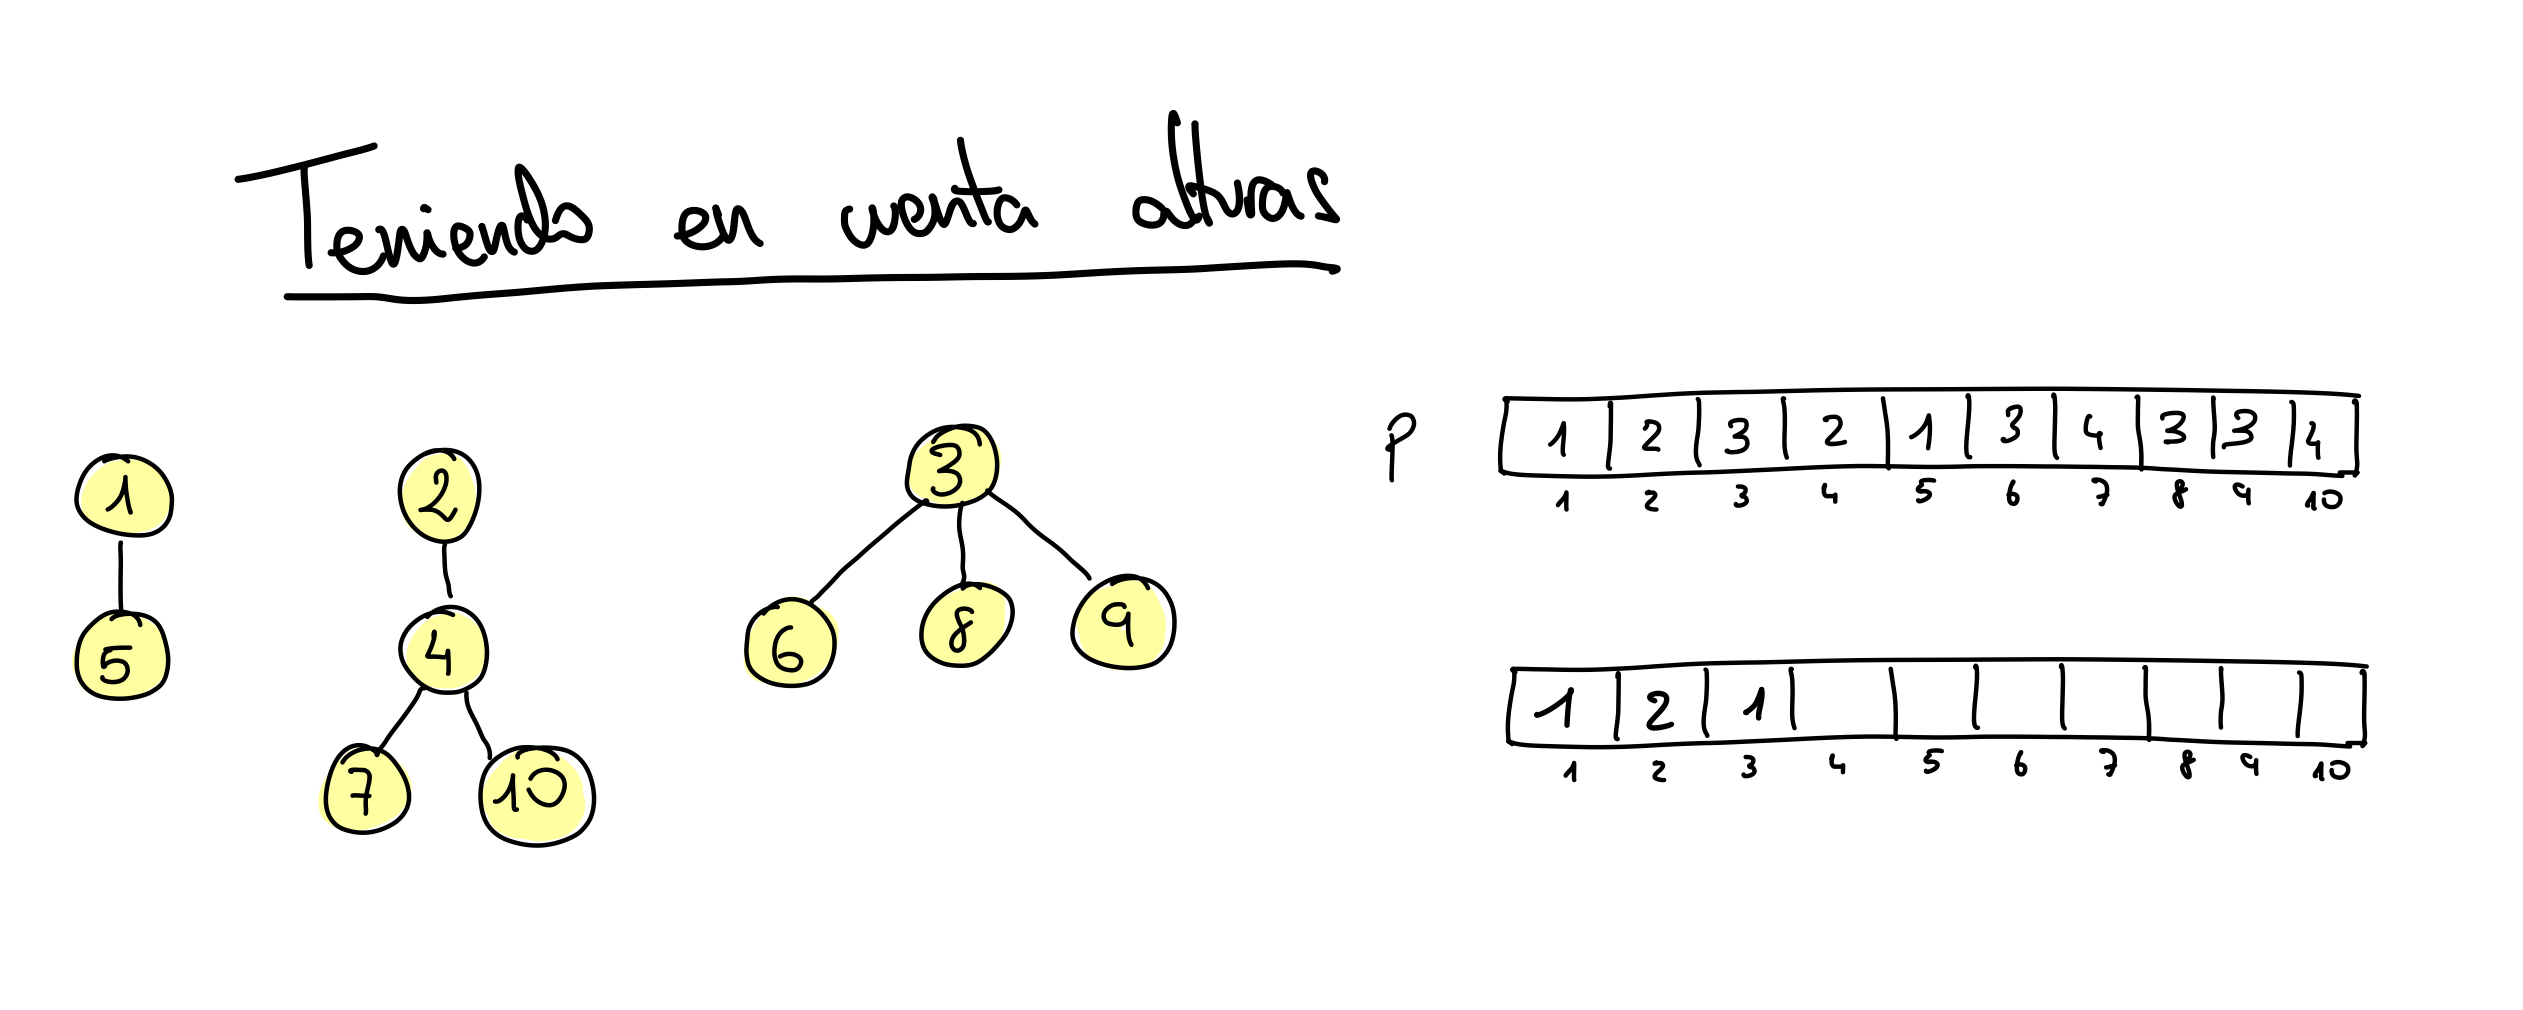 Teniendo en cuenta alturas
1 2 3
5 4 6 8 9
7 10
P 1 2 3 2 1 3 4 3 3 4
1 2 3 4 5 6 7 8 9 10
1 2 1
1 2 3 4 5 6 7 8 9 10